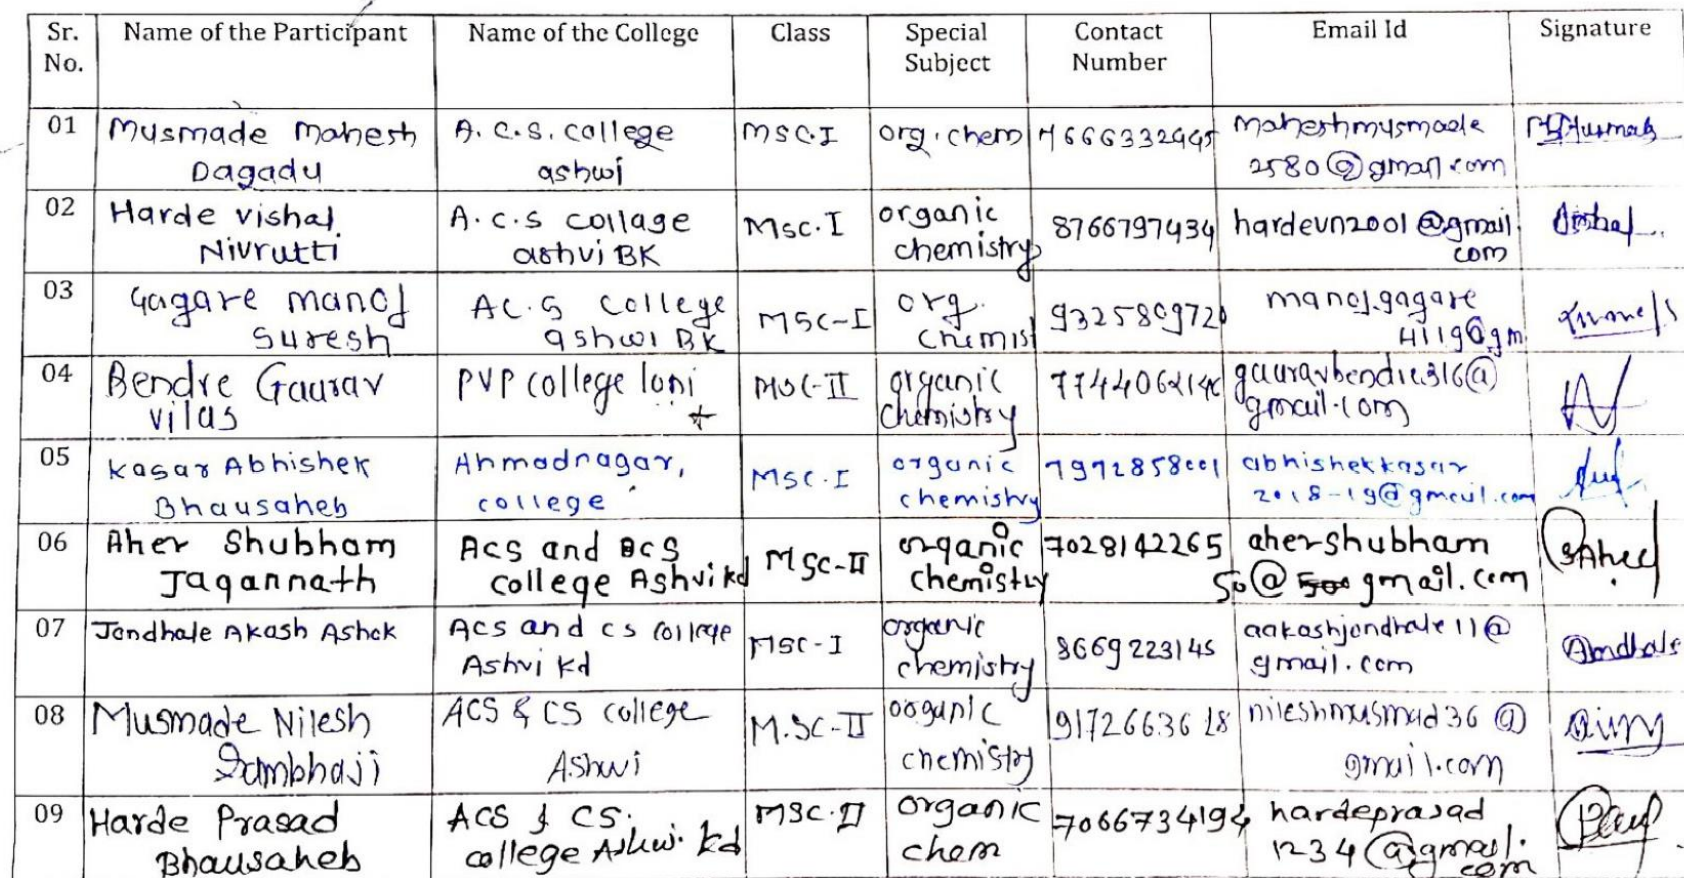 Sr. No. Name of the Participant Name of the College Class Special Subject Contact Number Email Id Signature
01 Musmade Mahesh Dagadu A. C. S. college ashwi MSC.I org. chem 7666332995 maheshmusmade 2580@gmail.com
02 Harde vishal Nivrutti A. C. S collage ashvi BK Msc. I organic chemistry 8766797434 hardevn2001@gmail. com
03 Gagare manoj Suresh AC. S college ashwi BK MSC-I org. chemist 9325809720 manoj.gagare 4119@gm
04 Bendre Gaurav vilas PVP college loni MSC-II organic chemistry gauravbendre316@ gmail.com
05 Kasar Abhishek Bhausaheb Ahmadnagar, college MSC. I organic chemistry 7972858001 abhishekkasar 2018-19@gmail.com
06 Aher Shubham Jagannath ACS and BCS college Ashvi kd MSC-II organic chemistry 7028142265 ahershubham 50@ gmail.com
07 Jondhale Akash Ashok ACS and CS college Ashvi kd MSC-I organic chemistry 8669223145 aakashjondhale11@ gmail.com
08 Musmade Nilesh Sambhaji ACS & CS college Ashwi M.SC-II organic chemistry 9172663628 nileshmusmad36@ gmail.com
09 Harde Prasad Bhausaheb ACS & CS. college Ashwi. kd MSC.II organic chem 7066734194 hardeprasad 1234@gmail. com